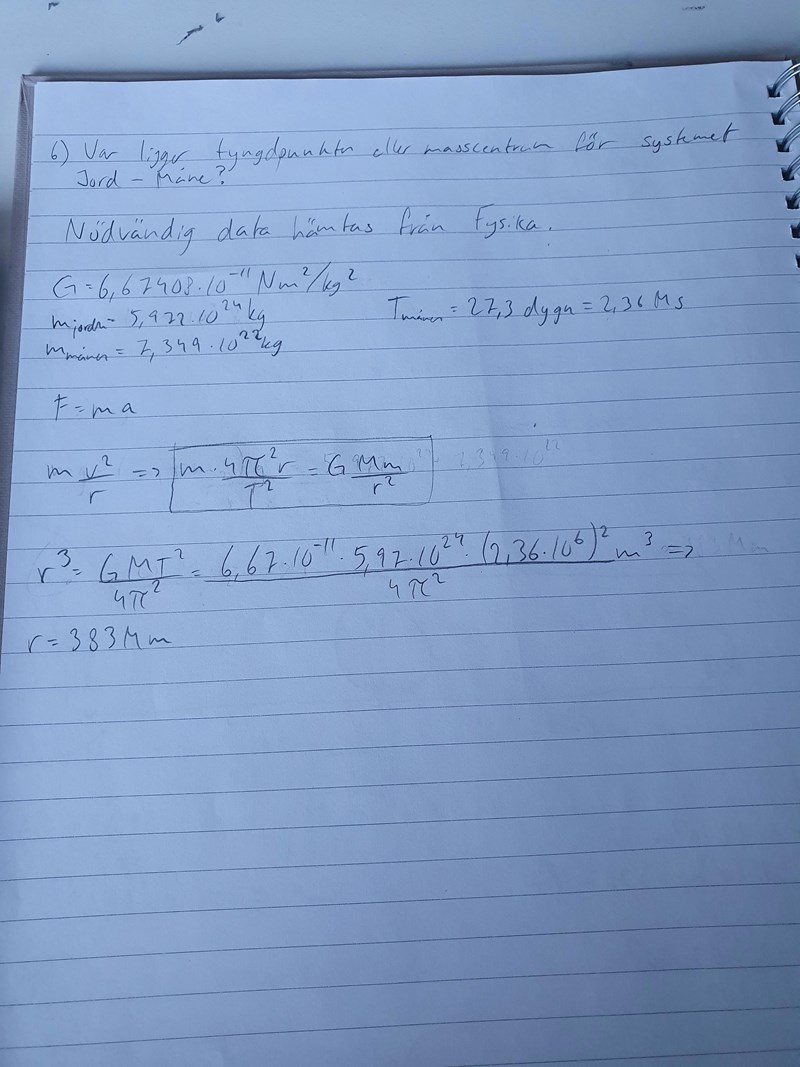 6) Var ligger tyngdpunkten eller masscentrum för systemet
Jord - Måne?
Nödvändig data hämtas från Fysika.
G = 6,67408·10⁻¹¹ Nm²/kg²
m_jorden = 5,972·10²⁴ kg
T_månen = 27,3 dygn = 2,36 Ms
m_månen = 7,349·10²² kg
F = ma
m v²/r => m·4π²r/T² = G Mm/r²
r³ = GMT²/4π² = 6,67·10⁻¹¹·5,97·10²⁴·(2,36·10⁶)²/4π² m³ =>
r = 383 Mm